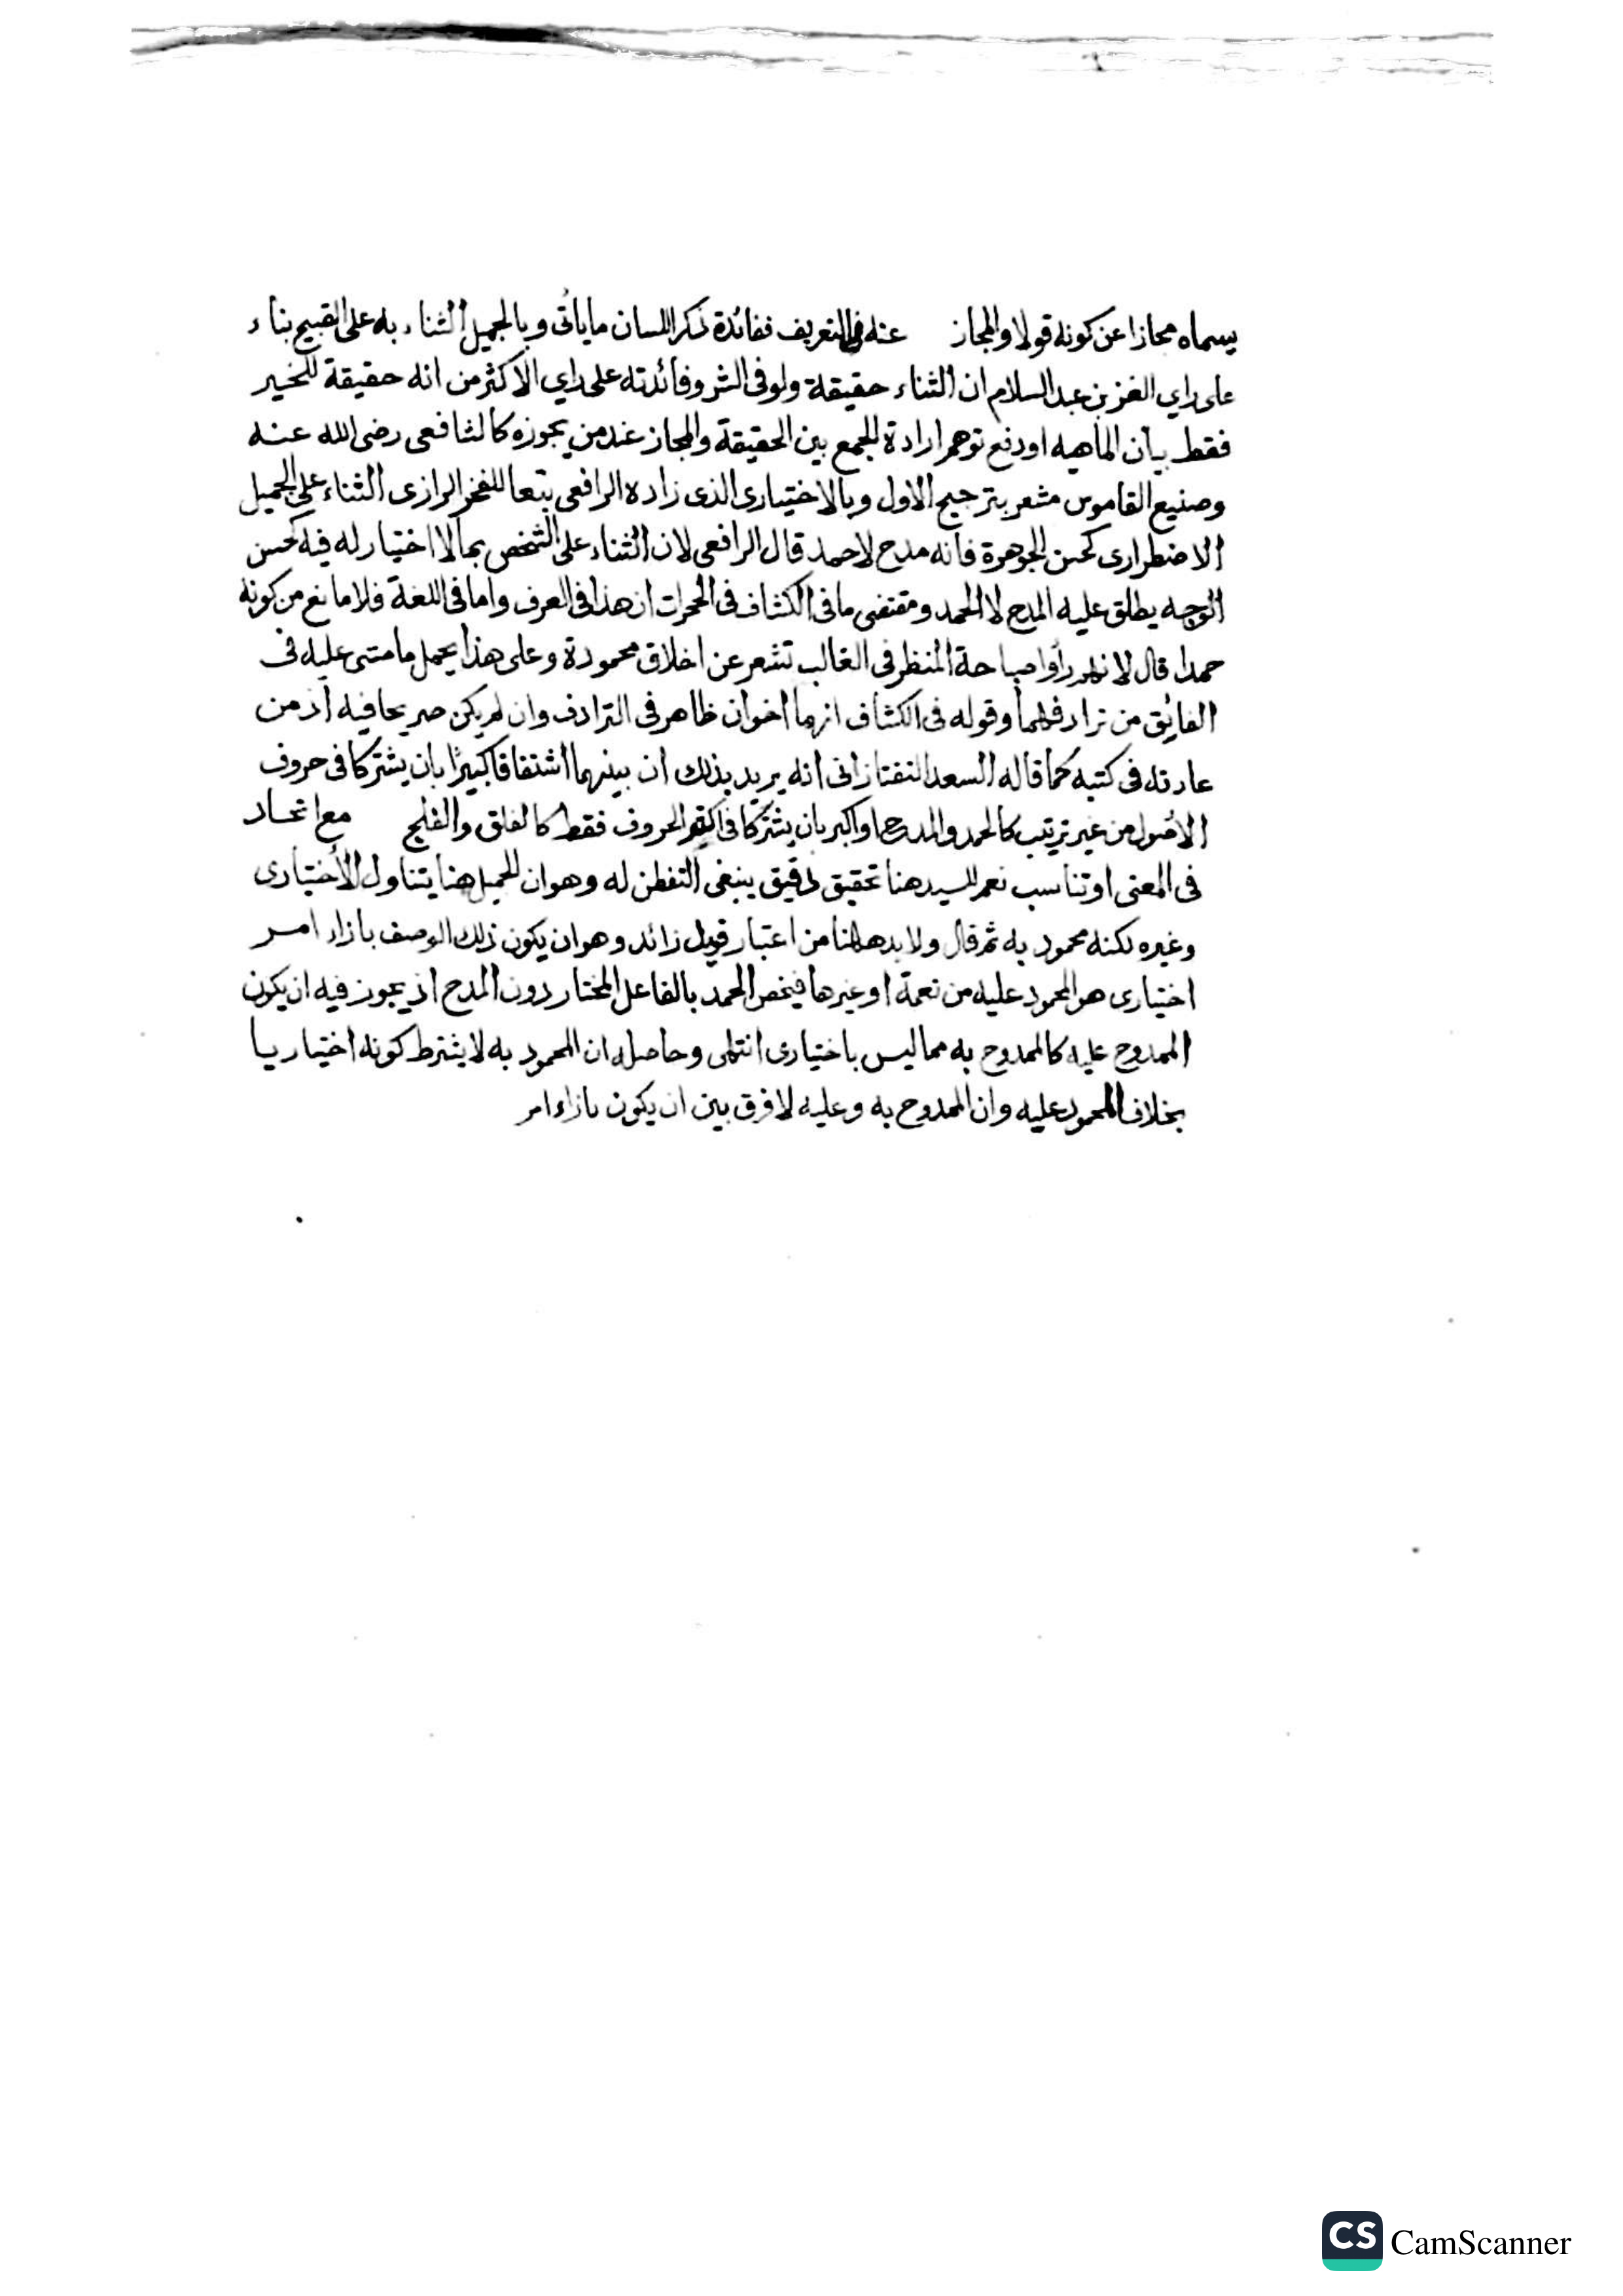 يسماه مجازا عن كونه قولا والمجاز عنه في التعريف ففائدة ذكر اللسان ما يأتى وبالجميل الثناء به على القبيح بناء
على راي العز بن عبد السلام ان الثناء حقيقة ولو فى الشر وفائدته على راي الأكثر من انه حقيقة للخير
فقط بيان الماهيه او دفع توهم ارادة الجمع بين الحقيقة والمجاز عند من يجوزه كالشافعى رضى الله عنه
وصنيع القاموس مشعر بترجيح الاول وبالاختيارى الذى زاده الرافعى تبعا للفخر الرازى الثناء على الجميل
الاضطرارى كحسن الجوهرة فانه مدح لا حمد قال الرافعى لان الثناء على الشخص بما لا اختيار له فيه كحسن
الوجه يطلق عليه المدح لا الحمد ومقتضى ما فى الكشاف فى الحجرات ان هذا فى العرف واما فى اللغة فلا مانع من كونه
حمدا قال لانهم رأوا صباحة المنظر فى الغالب تشعر عن اخلاق محمودة وعلى هذا يحمل ما مشى عليه فى
الفايق من ترادفهما وقوله فى الكشاف انهما اخوان ظاهر فى الترادف وان لم يكن صريحا فيه اذ من
عادته فى كتبه كما قاله السعد التفتازانى انه يريد بذلك ان بينهما اشتقاقا كبيرًا بان يشتركا فى حروف
الاصول من غير ترتيب كالحمد والمدح او اكبر بان يشتركا فى اكثر الحروف فقط كالفلق والفلج مع اتحاد
فى المعنى او تناسب نعم للسيد هنا تحقيق دقيق ينبغى التفطن له وهو ان الجميل هنا يتناول الأختيارى
وغيره لكنه محمود به ثم قال ولا بد ههنا من اعتبار قيد زائد وهو ان يكون ذلك الوصف بازاء امر
اختيارى هو المحمود عليه من نعمة او غيرها فيخص الحمد بالفاعل المختار دون المدح اذ يجوز فيه ان يكون
الممدوح عليه كالممدوح به مما ليس باختيارى انتهى وحاصله ان المحمود به لا يشترط كونه اختياريا
بخلاف المحمود عليه وان الممدوح به وعليه لا فرق بين ان يكون بازاء امر
CS CamScanner